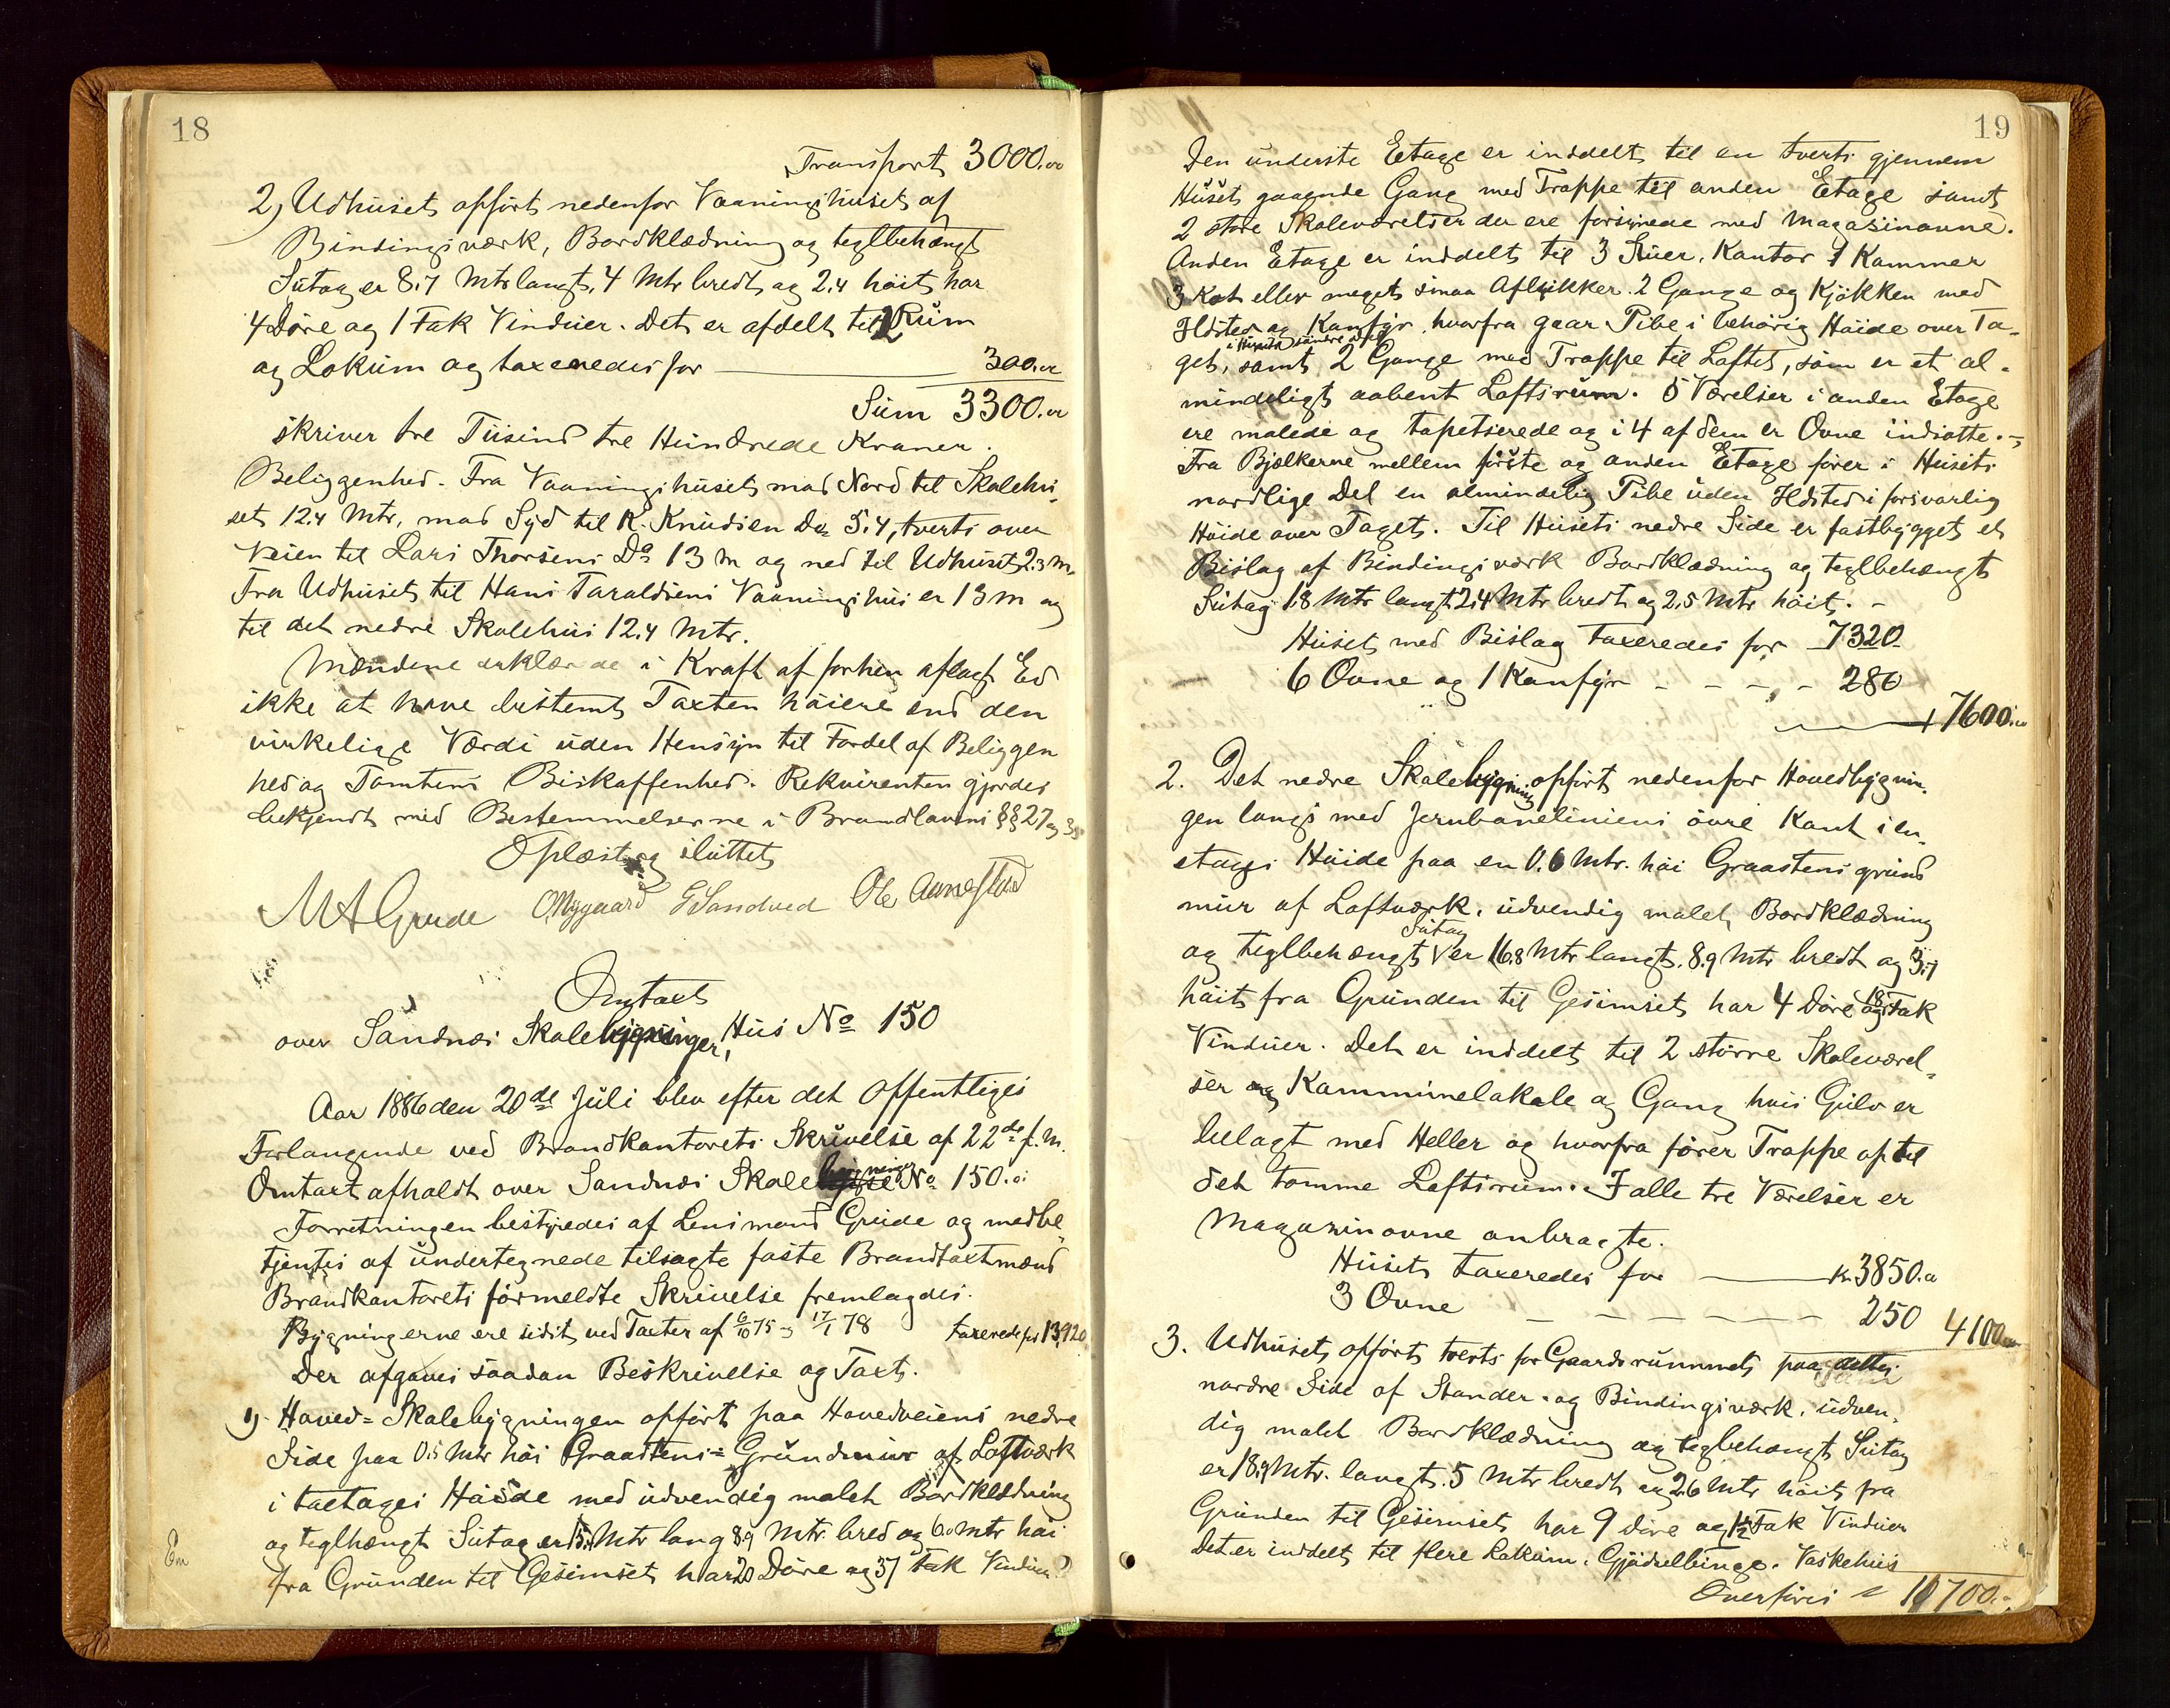 18
Transport 3000.00
2) Udhuset opført nedenfor Vaaningshuset af
Bindingsværk, Bordklædning og teglbehængt
Sutag er 8.7 Mtr langt, 4 Mtr bredt og 2.4 høit har
4 Døre og 1 Fak Vinduer. Det er afdelt til 2 Rum
og Lokum og taxeredes for 300.00
Sum 3300.00
skriver tre Tusind tre Hundrede Kroner.
Beliggenhed. Fra Vaaningshuset mod Nord til Skolehu-
set 12.4 Mtr, mod Syd til K. Knudsen Do 5.4, tverts over
Veien til Lars Thorsens Do 13 m og ned til Udhuset 2.3 m.
Fra Udhuset til Hans Taraldsens Vaaningshus er 13 m og
til det nedre Skolehus 12.4 Mtr.
Mændene erklærede i Kraft af forhen aflagt Ed
ikke at have bestemt Taxten høiere end den
virkelige Værdi uden Hensyn til Fordel af Beliggen
hed og Tomtens Beskaffenhed. Rekvirenten gjordes
bekjendt med Bestemmelserne i Brandlovens §§ 27 og
Oplæst og sluttet
M A Grude O. Nygaard G Sandved Ole Aanestad
Omtaxt
over Sandnæs Skolebygninger, Hus No 150
Aar 1886 den 20de Juli blev efter det Offentliges
Forlangende ved Brandkontorets Skrivelse af 22de f. M.
Omtaxt afholdt over Sandnæs Skolebygninger No 150.
Forretningen bestyredes af Lensmand Grude og medbe-
tjentes af undertegnede tilsagte faste Brandtaxtmænd
Brandkontorets formeldte Skrivelse fremlagdes.
Bygningerne ere sidst ved Taxter af 6/10 75 og 17/1 78 taxerede for 13,920
Der afgaves saadan Beskrivelse og Taxt.
1) Hoved=Skolebygningen opført paa Hovedveiens nedre
Side paa 0.5 Mtr høi Graastens=Grundmur af Loftværk
i toetages Høide med udvendig malet Bordklædning
og teglhængt Sutag er Mtr lang 8.9 Mtr. bred og 6.0 Mtr høi
fra Grunden til Gesimset har 20 Døre og 37 Fak Vinduer
19
Den underste Etage er inddelt til en tverts gjennem
Huset gaaende Gang med Trappe til anden Etage samt
2 store Skoleværelser der ere forsynede med Magasinovne.
Anden Etage er inddelt til 3 Stuer, Kontor 1 Kammer
3 Kot eller meget smaa Aflukker. 2 Gange og Kjøkken med
Ildsted og Komfyr hvorfra gaar Pibe i behørig Høide over Ta-
i Husets søndre Del
get, samt 2 Gange med Trappe til Loftet, som er et al-
mindeligt aabent Loftsrum. 5 Værelser i anden Etage
ere malede og tapetserede og i 4 af dem er Ovne indsatte.
Fra Bjælkerne mellem første og anden Etage fører i Husets
nordlige Del en almindelig Pibe uden Ildsted i forsvarlig
Høide over Taget. Til Husets nedre Side er fastbygget et
Bislag af Bindingsværk Bordklædning og teglbehængt
Sutag 1.8 Mtr langt 2.4 Mtr bredt og 2.5 Mtr høit.
Huset med Bislag taxeredes for 7320
6 Ovne og 1 Komfyr - - - - 280
7600.00
2. Det nedre Skolebygning opført nedenfor Hovedbygnin-
gen langs med Jernbaneliniens øvre Kant i en-
etages Høide paa en 0.6 Mtr. høi Graastens grund
mur af Loftværk, udvendig malet Bordklædning
Sutag
og teglbehængt er 16.8 Mtr langt. 8.9 Mtr bredt og 3.7
høit fra Grunden til Gesimset har 4 Døre og 18 Fak
Vinduer. Det er inddelt til 2 større Skoleværel-
ser og Kommunelokale og Gang hvis Gulv er
belagt med Heller og hvorfra fører Trappe op til
det tomme Loftsrum. I alle tre Værelser er
Magazinovne anbragte.
Huset taxeredes for Kr 3850.00
3 Ovne - - - - - - 250 4100.00
3. Udhuset opført tverts for Gaardsrummet paa dettes
nordre Side af Stander- og Bindingsværk, udven-
dig malet Bordklædning og teglbehængt Sutag
er 18.9 Mtr. langt. 5 Mtr bredt og 2.6 Mtr høit fra
Grunden til Gesimset har 9 Døre og Fak Vinduer
Det er inddelt til flere Lokum. Gjødselbinge. Vaskehus
Overføres 11700.